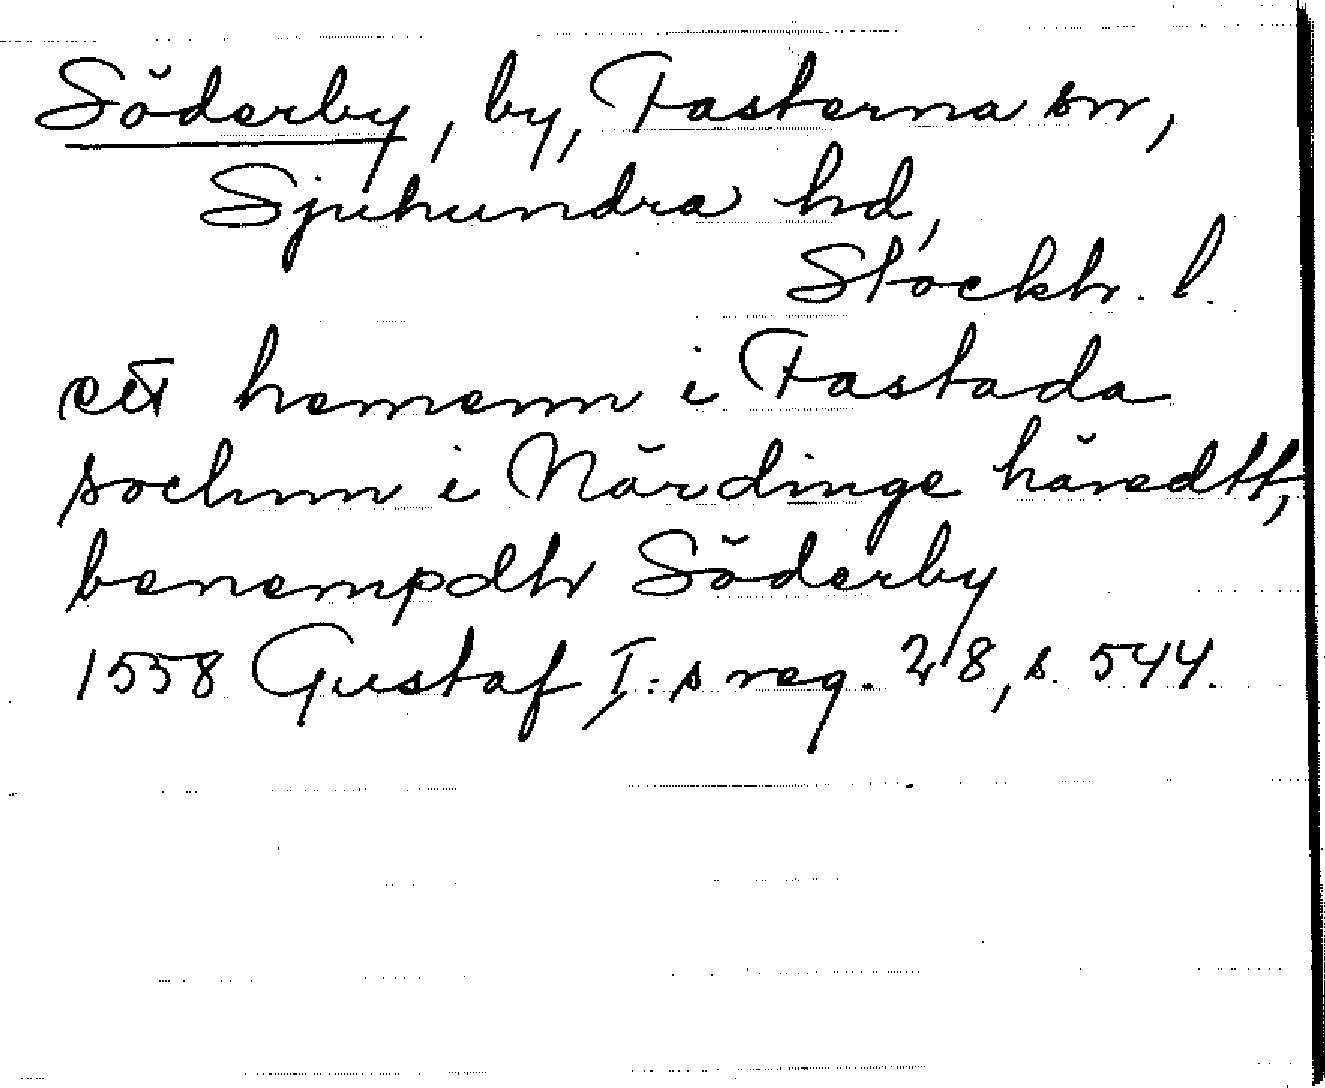 Söderby, by, Fasterna sn,
Sjuhundra hd,
Stockh. l.
ett hemenn i Fastada
sochnn i Närdinge häredtt,
benempdh Söderby
1558 Gustaf I:s reg. 28, s. 544.